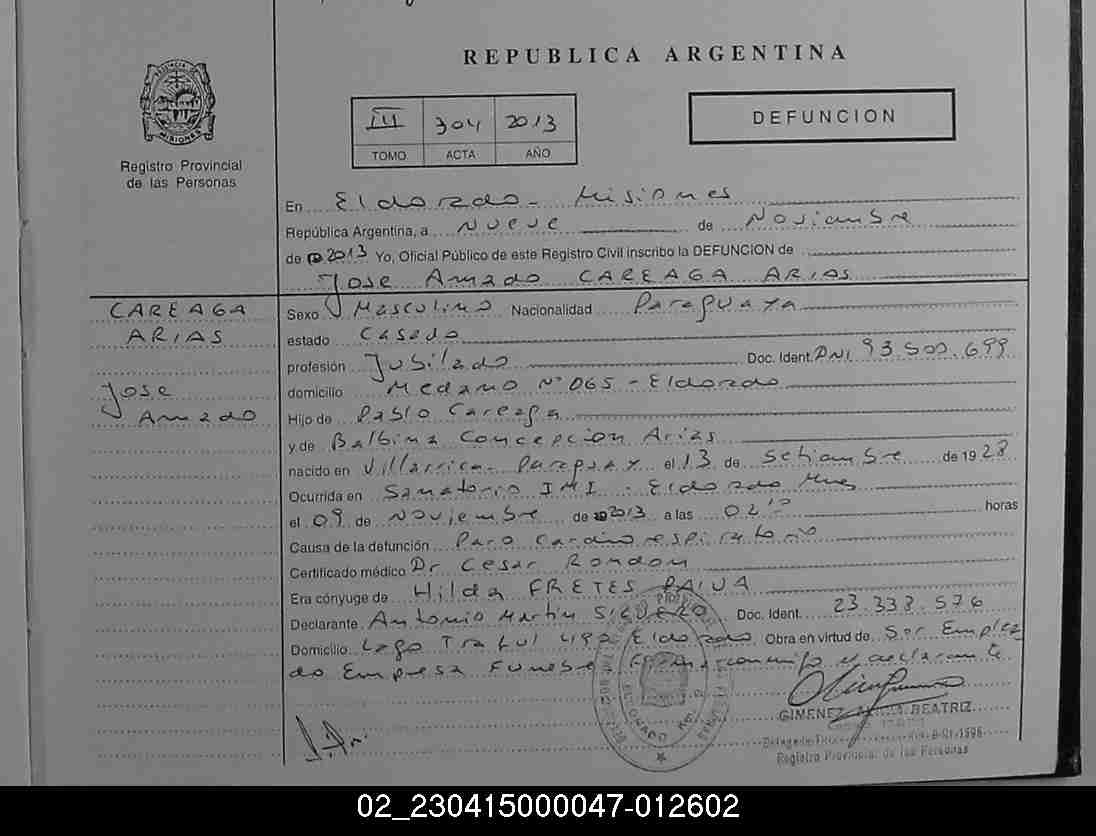 REPUBLICA ARGENTINA
III 304 2013
TOMO ACTA AÑO
DEFUNCION
Registro Provincial
de las Personas
En Eldorado - Misiones
República Argentina, a Nueve de Noviembre
de 2013 Yo, Oficial Público de este Registro Civil inscribo la DEFUNCION de
Jose Amado CAREAGA ARIAS
CAREAGA
ARIAS
Jose
Amado
Sexo Masculino Nacionalidad Paraguaya
estado Casado
profesión Jubilado Doc. Ident. DNI 93.500.699
domicilio Medano N° 065 - Eldorado
Hijo de Pablo Careaga
y de Balbina Concepcion Arias
nacido en Villarrica - Paraguay el 13 de Setiembre de 1928
Ocurrida en Sanatorio IMI - Eldorado Mnes
el 09 de Noviembre de 2013 a las 02 horas
Causa de la defunción Paro Cardiorespiratorio
Certificado médico Dr Cesar Rondon
Era cónyuge de Hilda FRETES PAIVA
Declarante Antonio Martin Doc. Ident. 23.338.576
Domicilio Lago Eldorado Obra en virtud de Ser Emplea
do Empresa Funebre. conmigo y declarante
GIMENEZ BEATRIZ
Registro Provincial de las Personas
02_230415000047-012602